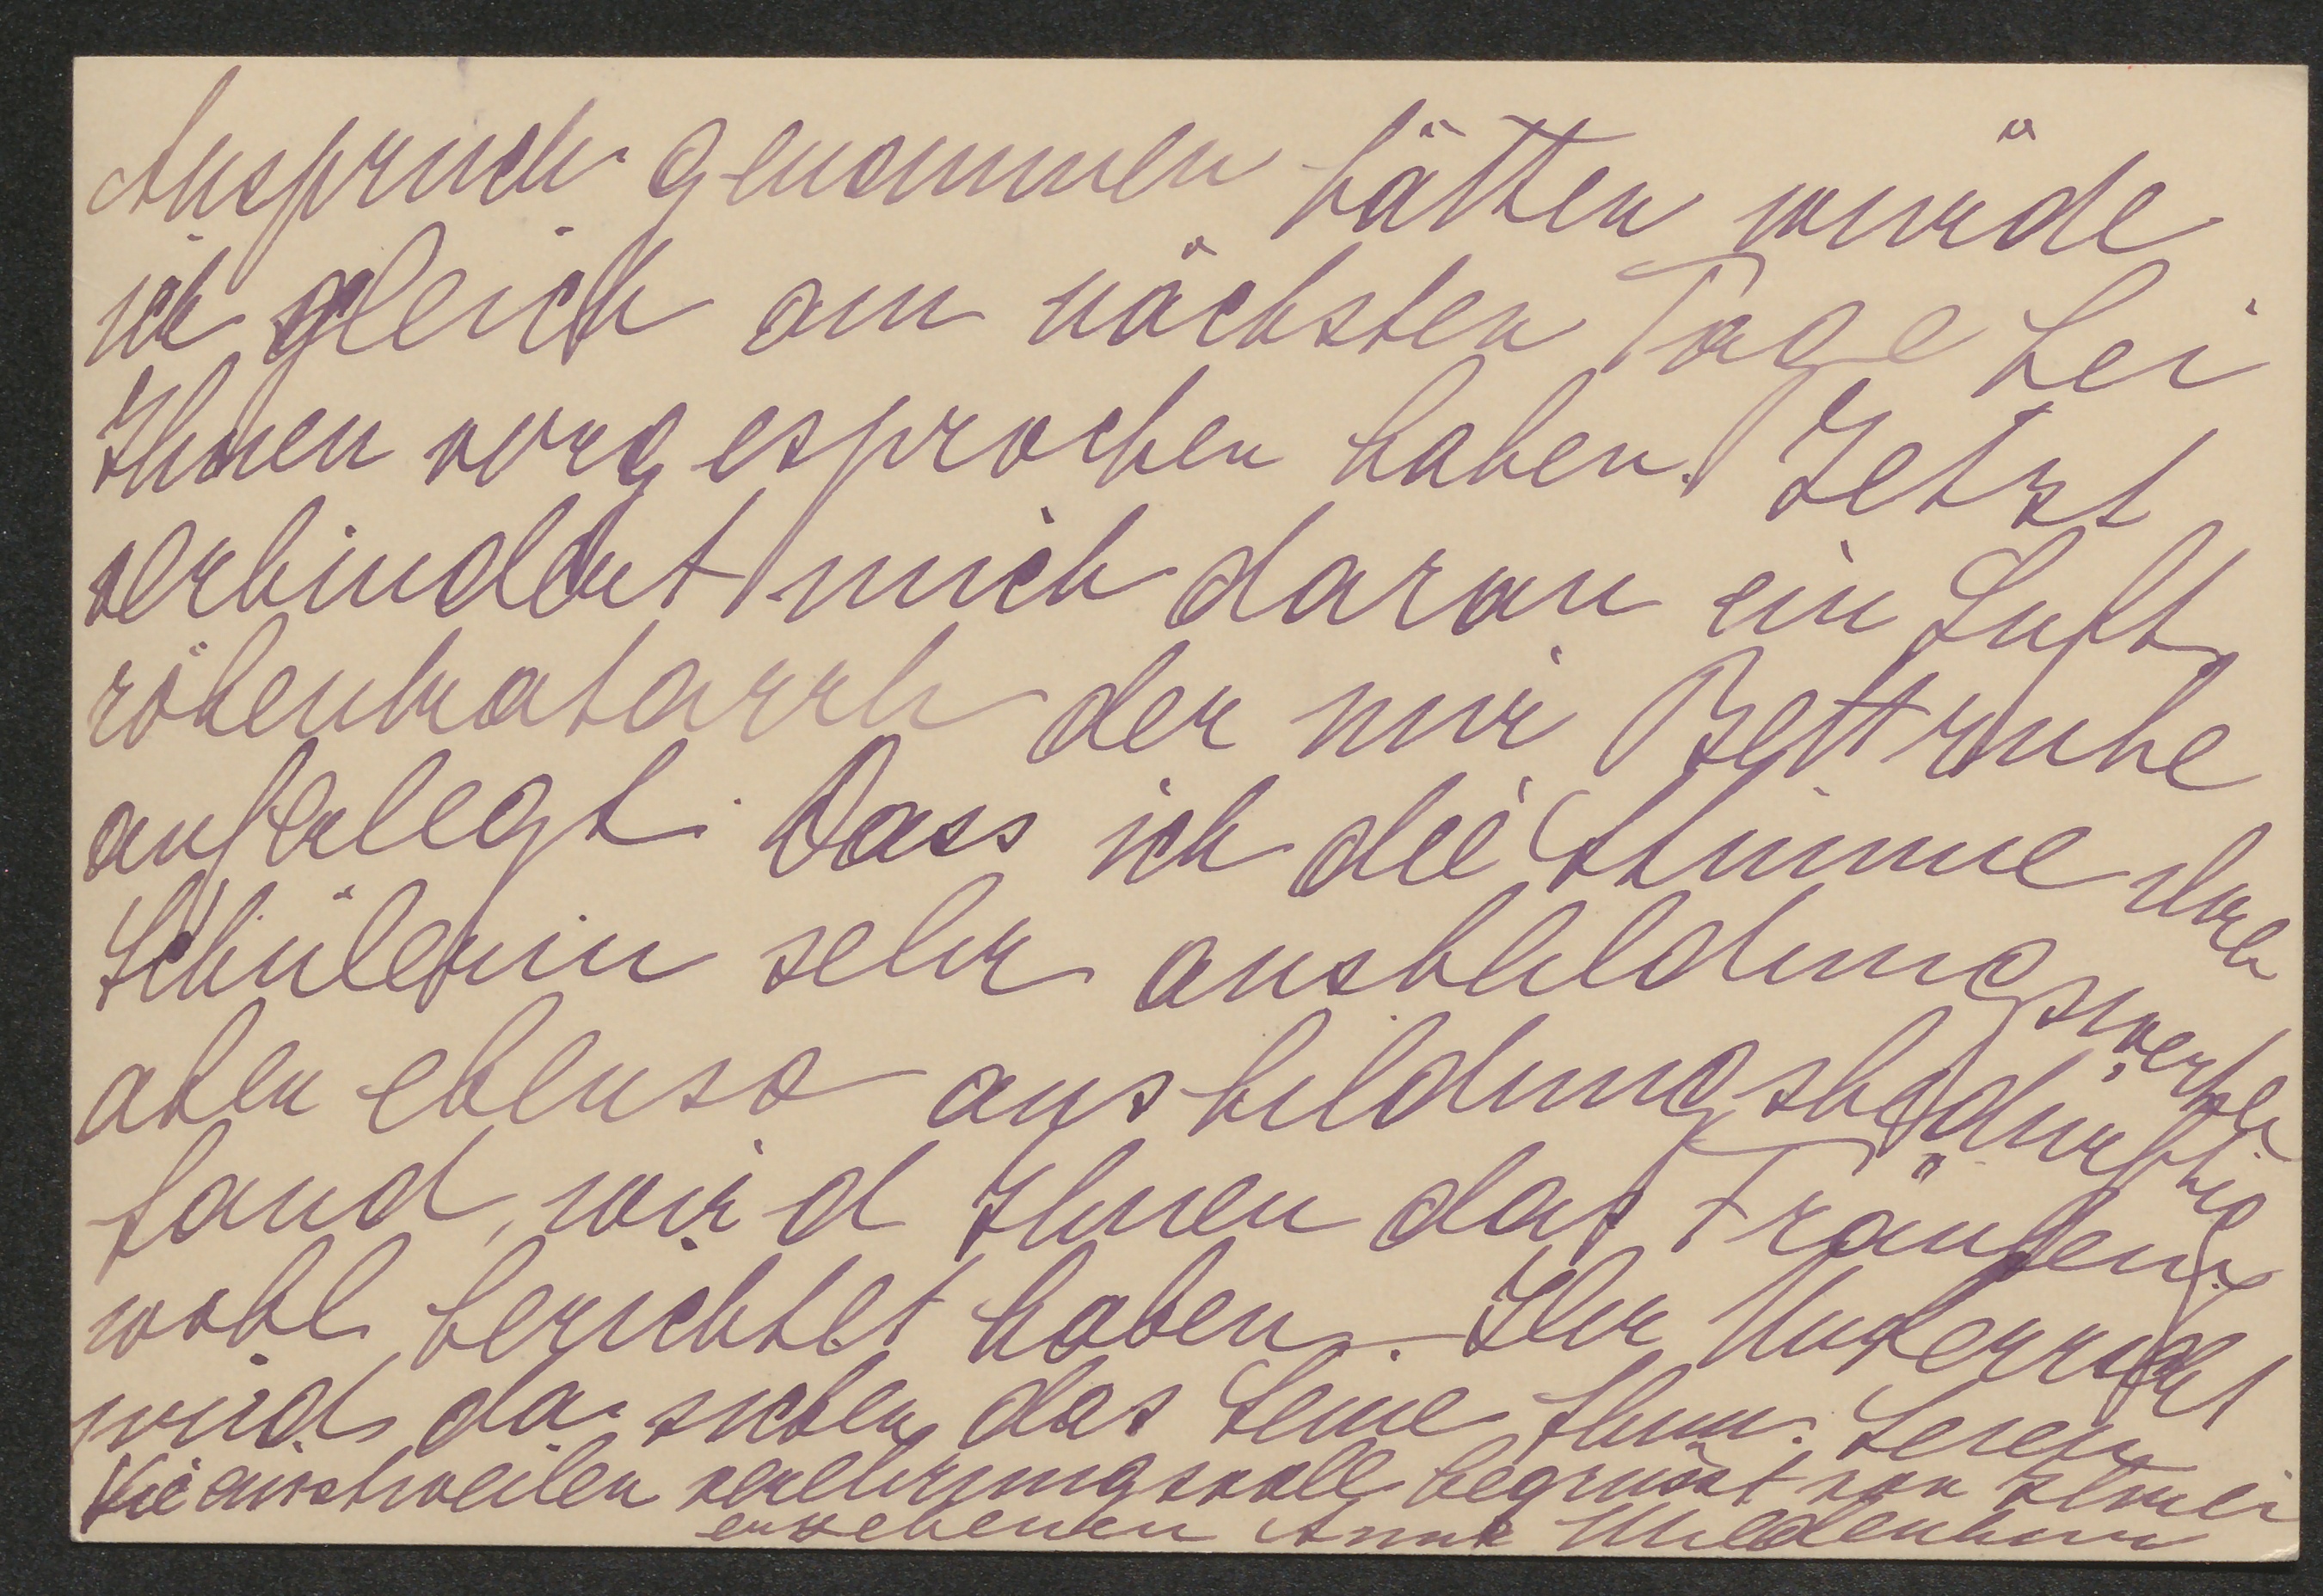 Anspruch genommen hätten würde
ich gleich am nächsten Tage bei
Ihnen vorgesprochen haben. Jetzt
verhindert mich daran ein Luft
röhenkatarrh der mir Bettruhe
auferlegt. Dass ich die Stimme Ihrer
Schülerin sehr ausbildungswerth
aber ebenso ausbildungsbedürftig
fand, wird Ihnen das Fräulein
wohl berichtet haben. Ihr Unterricht
wird da sicher das Seine thun. Seien
Sie einstweilen verehrungsvoll begrüsst von Ihrer
ergebenen Anna Mildenburg